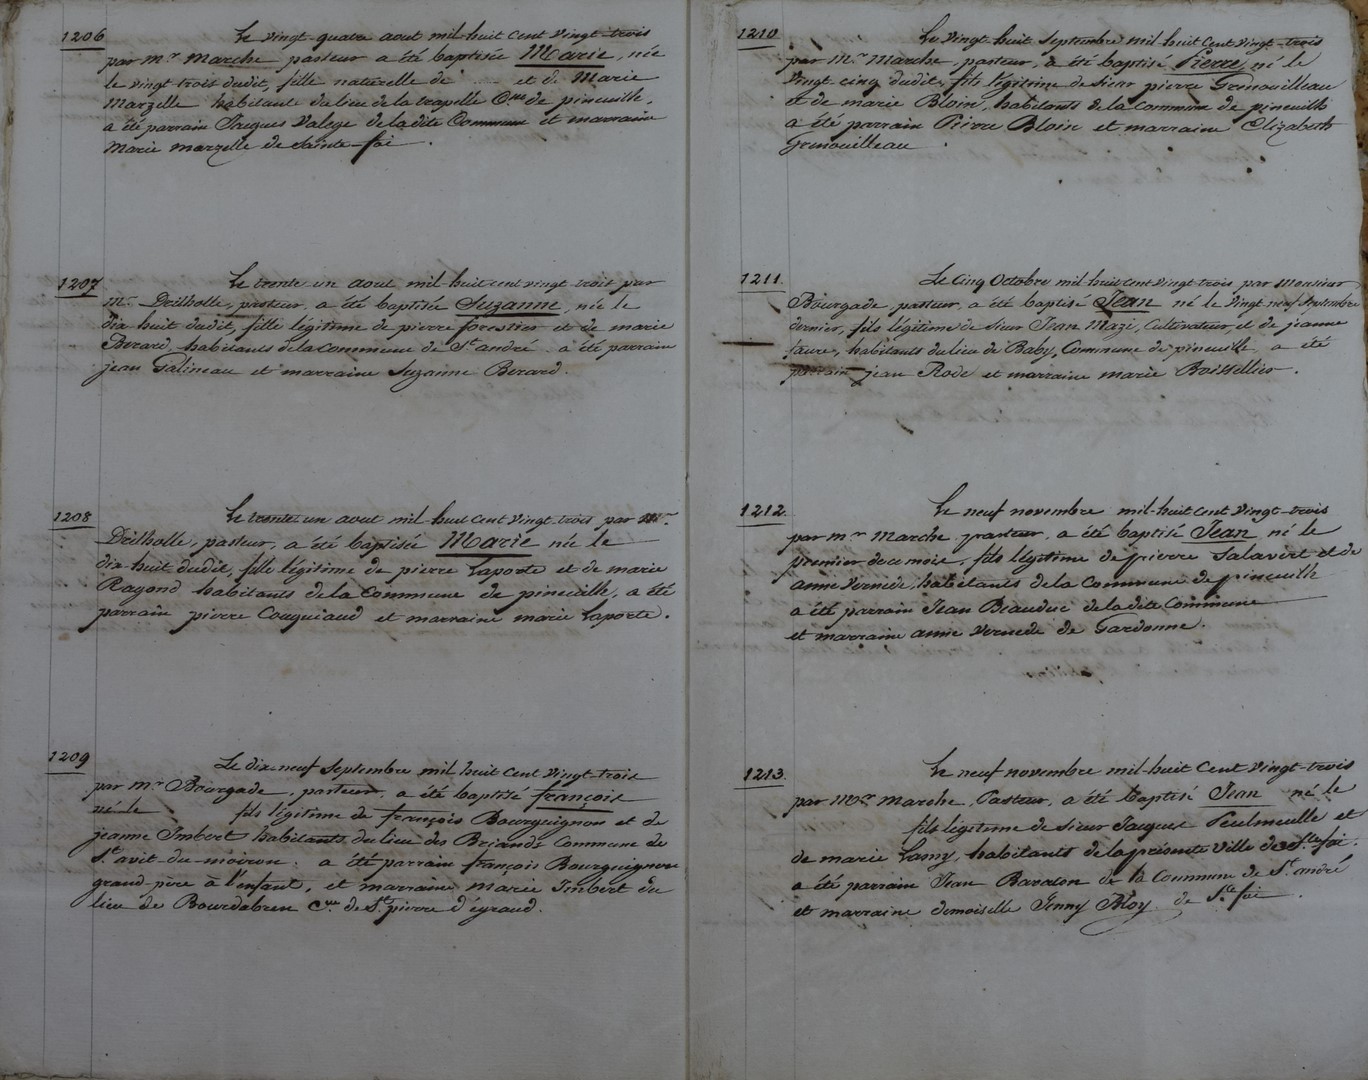 1206
Le vingt-quatre aout mil-huit cent vingt-trois
par mr. Marche pasteur a été baptisée Marie, née
le vingt trois dudit, fille naturelle de et de Marie
Marzelle habitante du lieu de la trapelle Cne de pineuille,
a été parrain Jacques Valege de la dite Commune et marraine
Marie marzelle de Sainte-foi.
1207
Le trente un aout mil-huit cent vingt trois par
mr. Drilholle, pasteur, a été baptisée Suzanne, née le
dix huit dudit, fille légitime de pierre forestier et de marie
Berard habitants de la commune de St andré. a été parrain
jean Galineau et marraine Suzanne Berard.
1208
Le trente un aout mil-huit cent vingt-trois par mr.
Drilholle, pasteur, a été baptisée Marie née le
dix huit dudit, fille légitime de pierre Laporte et de marie
Rayond habitants de la Commune de pineuille, a été
parrain pierre Couquiaud et marraine marie Laporte.
1209
Le dix-neuf Septembre mil huit cent vingt-trois
par mr. Bourgade, pasteur, a été baptisé françois
né le fils légitime de françois Bourguignon et de
jeanne Imbert habitants du lieu des Briands Commune de
St avit-du-moiron. a été parrain françois Bourguignon
grand-père à l'enfant, et marraine Marie Imbert du
lieu de Bourdabren Cne. de St. pierre d'eyraud.
1210
Le vingt-huit Septembre mil-huit Cent vingt-trois
par mr. Marche, pasteur, a été baptisé Pierre, né le
vingt-cinq dudit, fils légitime de Sieur pierre Grenouilleau
et de marie Bloin, habitants de la Commune de pineuille
a été parrain Pierre Bloin et marraine Elizabeth
Grenouilleau.
1211.
Le cinq Octobre mil-huit cent vingt-trois par Monsieur
Bourgade, pasteur, a été baptisé Jean né le vingt neuf Septembre
dernier, fils légitime de Sieur Jean Mazi, Cultivateur, et de jeanne
faure, habitants du lieu de Baby, Commune de pineuille a été
parrain jean Rode et marraine marie Boissellier.
1212.
Le neuf novembre mil-huit cent vingt-trois
par mr. Marche, pasteur, a été baptisé Jean né le
premier du c. mois, fils légitime de pierre Salavert et de
anne Vernede, habitants de la Commune de pineuille
a été parrain Jean Beauduc de la dite Commune
et marraine anne Vernede de Gardonne.
1213.
Le neuf novembre mil-huit cent vingt-trois
par Mr. Marche, Pasteur, a été baptisé Jean né le
fils légitime de Sieur Jacques Peulmeulle et
de marie Lamy, habitants de la présente ville de Ste foi.
a été parrain Jean Baraton de la Commune de St. andré
et marraine demoiselle Jenny Bloy de Ste. foi.